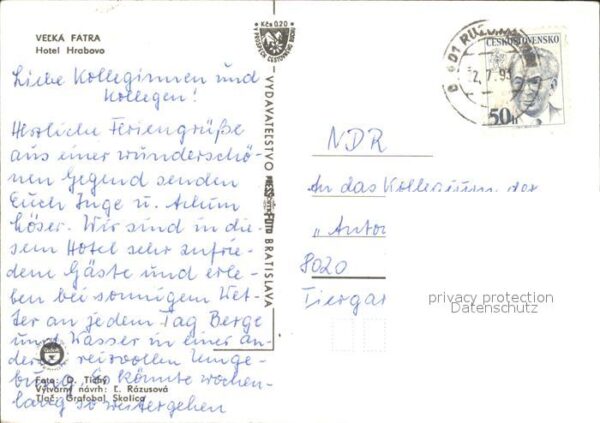 VEĽKÁ FATRA
Hotel Hrabovo
Liebe Kolleginnen und
Kollegen!
Herzliche Feriengrüße
aus einer wunderschö-
nen Gegend senden
Euch Inge u. Achim
Höser. Wir sind in die-
sem Hotel sehr zufrie-
dem Gäste und erle-
ben bei sonnigem Wet-
ter an jedem Tag Berge
und Wasser in einer an-
deren reizvollen Umge-
bung. So könnte wochen-
lang so weitergehen
Foto: D. Tichý
Výtvarný návrh: Ľ. Rázusová
Tlač: Grafobal Skalica
Kčs 0,20
VYDAVATEĽSTVO
PRESSFOTO
BRATISLAVA
01 RUŽOM
2.7.9
ČESKOSLOVENSKO
50h
NDR
An das Kollegium der
"Anton
8020
Tiergar
privacy protection
Datenschutz